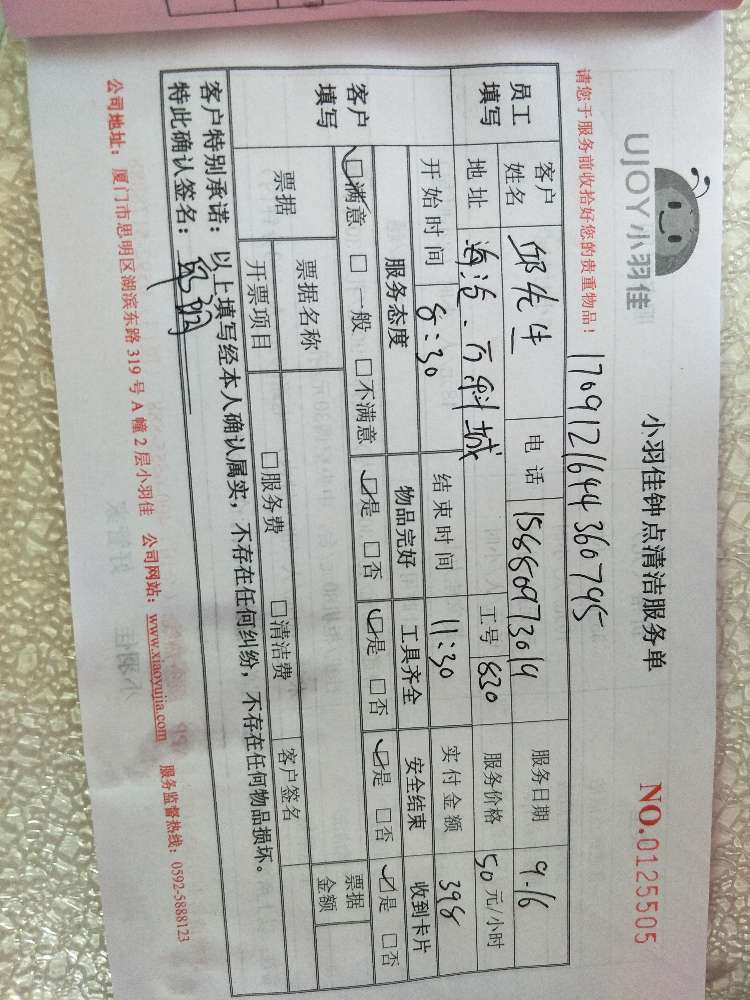 UJOY小羽佳
小羽佳钟点清洁服务单
NO.0125505
请您于服务前收拾好您的贵重物品!
1709121644360795
员工填写
客户姓名 邱先生 电话 15880973019 服务日期 9.16
地址 海沧.万科城 工号 830 服务价格 50元/小时
开始时间 8:30 结束时间 11:30 实付金额 398
客户填写
服务态度 物品完好 工具齐全 安全结束 收到卡片
☑满意 □一般 □不满意 ☑是 □否 ☑是 □否 ☑是 □否 ☑是 □否
票据 票据名称 票据金额
开票项目 □服务费 □清洁费 客户签名
客户特别承诺:以上填写经本人确认属实,不存在任何纠纷,不存在任何物品损坏。
特此确认签名:
公司地址:厦门市思明区湖滨东路319号A幢2层小羽佳 公司网站:www.xiaoyujia.com 服务监督热线:0592-5888123